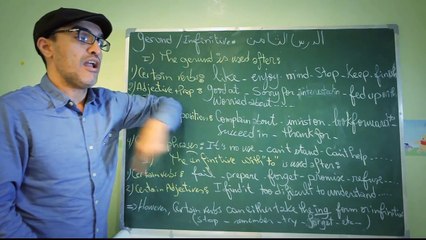 gerund / Infinitive: الدرس الثامن
I) The gerund is used after:
1) Certain verbs: like - enjoy - mind - stop - keep - finish
2) Adjective + Prep: good at - sorry for - interested in - fed up with
worried about
Complain about - insist on - look forward to
Succeed in - thank for
It's no use - can't stand - Can't help.....
The infinitive with "to" is used after:
1) Certain verbs: fail - prepare - forget - promise - refuse....
2) Certain Adjectives: I find it too difficult to understand....
=> However, Certain verbs can either take the ing form or infinitive
(stop - remember - try - forget - etc...)